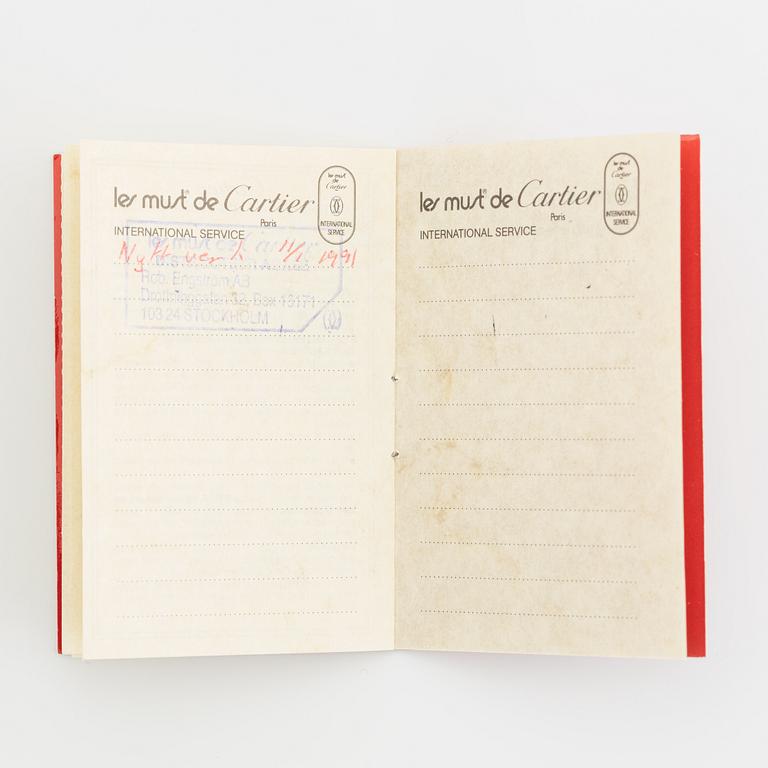 les must de Cartier
Paris
INTERNATIONAL SERVICE
les must
de
Cartier
INTERNATIONAL
SERVICE
les must de Cartier
Nytt verk 1991
Rob. Engström AB
Drottninggatan 32, Box 16171
103 24 STOCKHOLM
les must de Cartier
Paris
INTERNATIONAL SERVICE
les must
de
Cartier
INTERNATIONAL
SERVICE